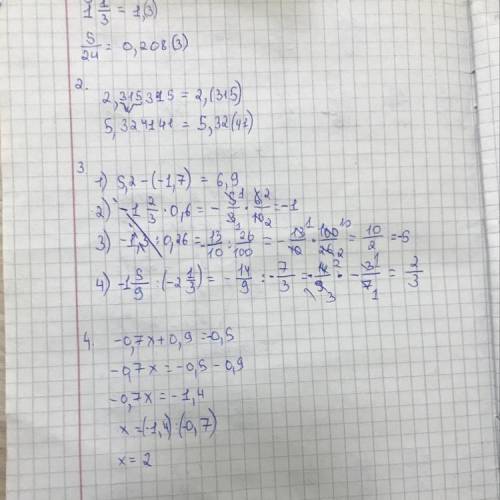 1 1/3 = 1,(3)
5/24 = 0,208(3)
2.
2,315315 = 2,(315)
5,324141 = 5,32(41)
3
1) 5,2 - (-1,7) = 6,9
2) -1 2/3 · 0,6 = - 5/3 · 6/10 = -1
3) -1,3 : 0,26 = - 13/10 : 26/100 = - 13/10 · 100/26 = 10/2 = -5
4) -1 5/9 : (-2 1/3) = - 14/9 : - 7/3 = - 14/9 · - 3/7 = 2/3
4.
-0,7x + 0,9 = -0,5
-0,7x = -0,5 - 0,9
-0,7x = -1,4
x = (-1,4) : (-0,7)
x = 2